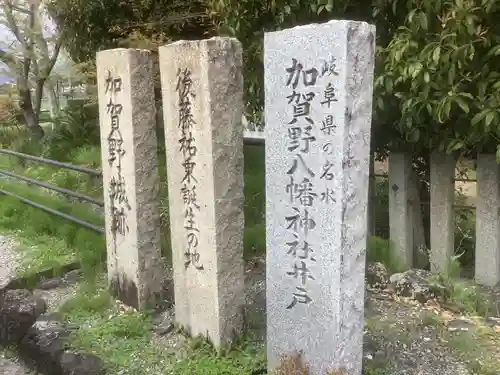 岐阜県の名水
加賀野八幡神社井戸
後藤祐乗誕生の地
加賀野城跡